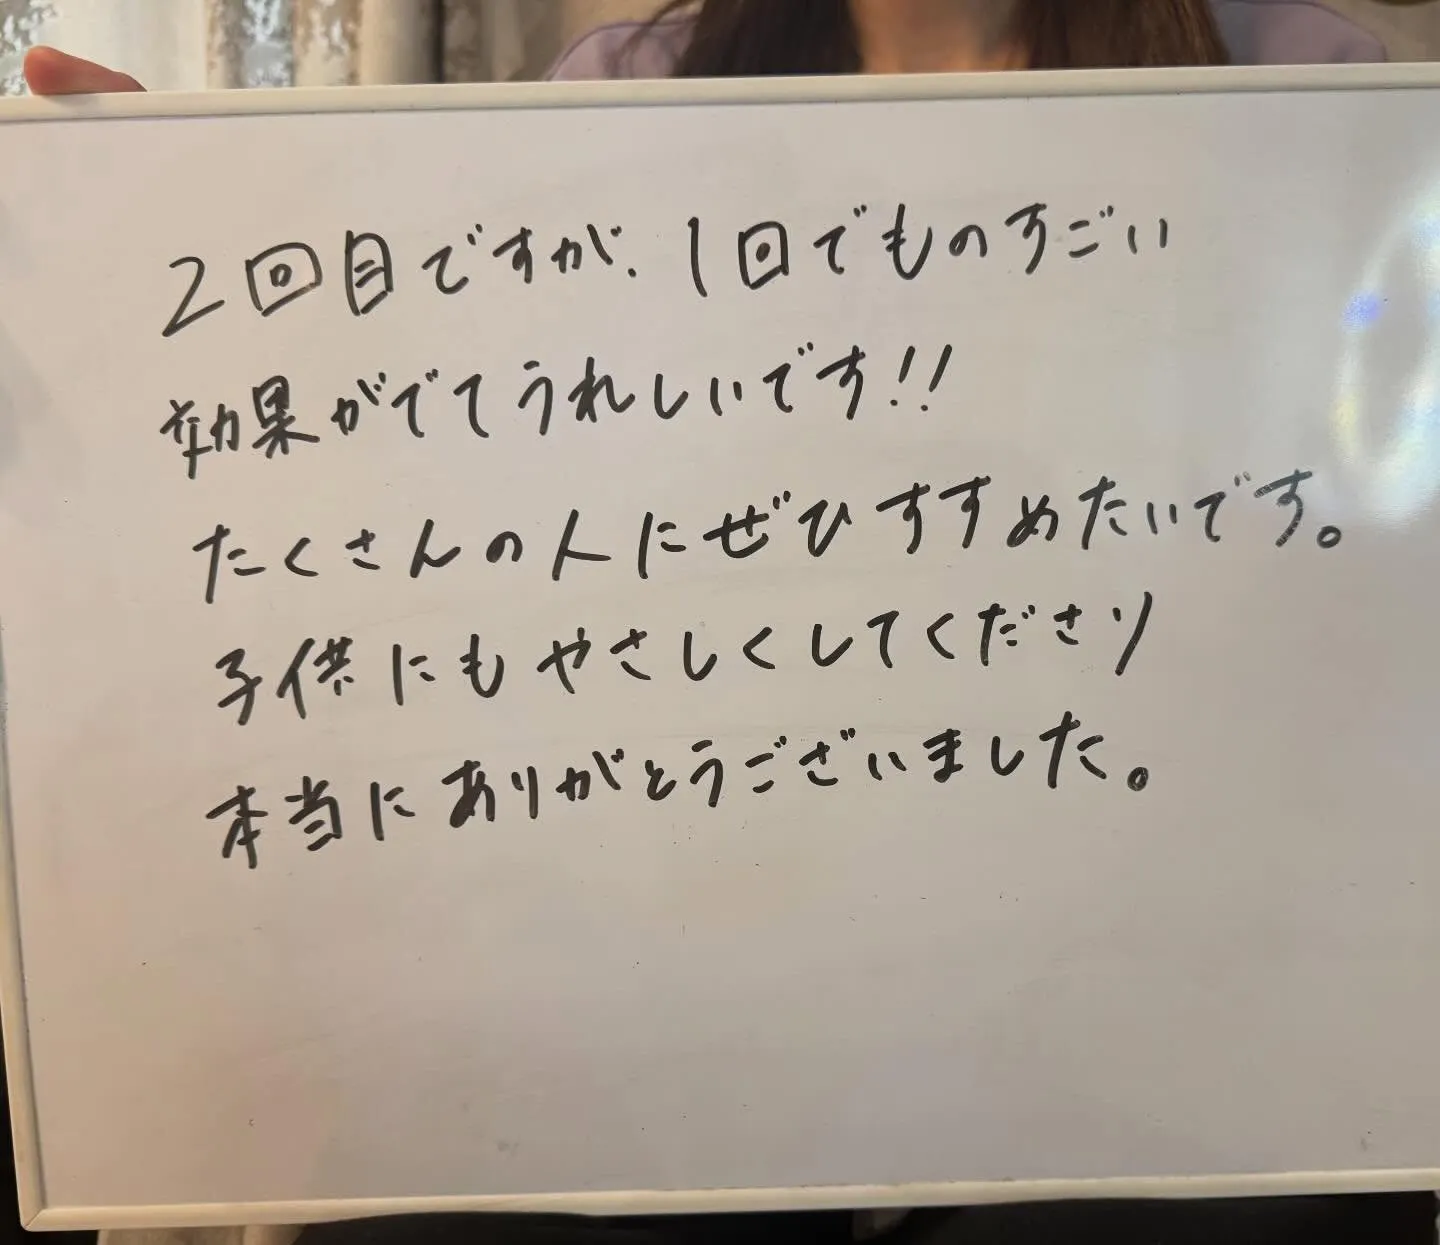 2回目ですが、1回でものすごい
効果がでてうれしいです!!
たくさんの人にぜひすすめたいです。
子供にもやさしくしてくださり
本当にありがとうございました。